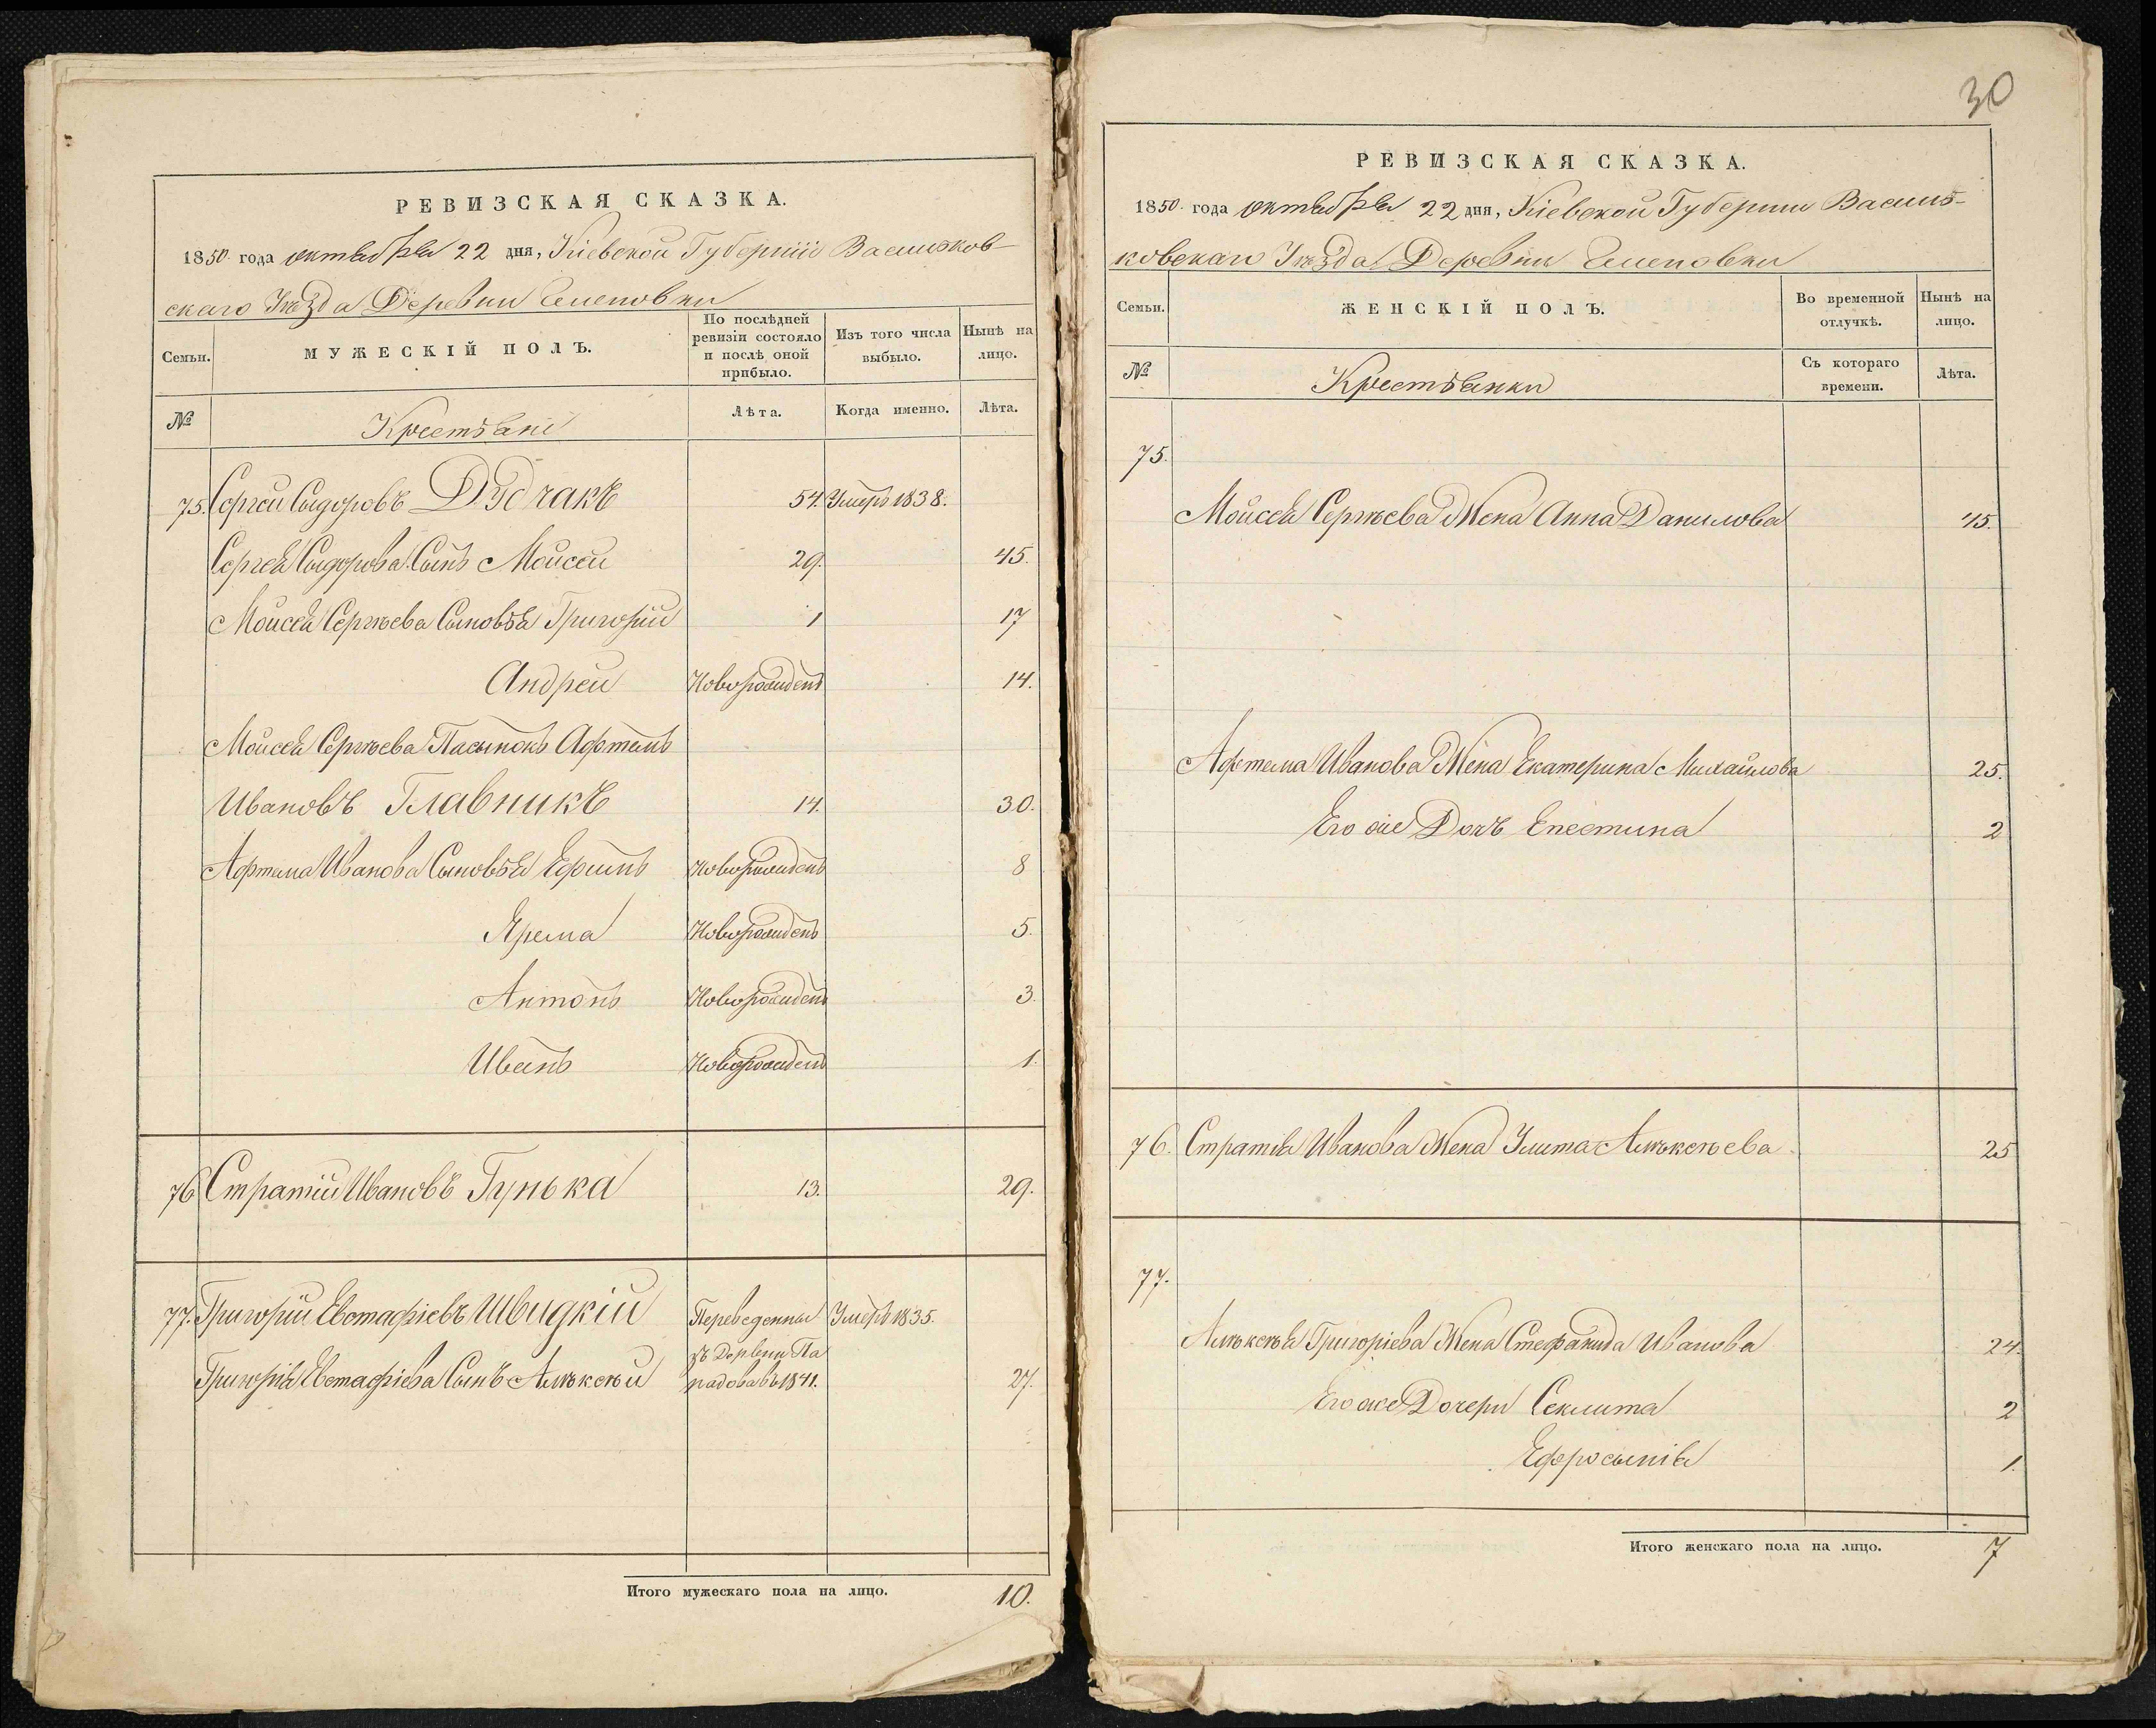 РЕВИЗСКАЯ СКАЗКА.
1850 года октября 22 дня, Кіевской Губерніи Васильков-
скаго Уѣзда Деревни
Семьи.
МУЖЕСКІЙ ПОЛЪ.
По послѣдней ревизіи состояло и послѣ оной прибыло.
Изъ того числа выбыло.
Нынѣ на лицо.
№
Крестьяне
Лѣта.
Когда именно.
Лѣта.
75. Сергей Сыдоровъ Дудчакъ 54. Умеръ 1838.
Сергея Сыдорова Сынъ Моисей 29. 45.
Моисея Сергѣева Сыновья Григорій 1 17
Андрей Новорожденъ 14.
Моисея Сергѣева Пасынокъ Артемъ
Ивановъ Главникъ 14. 30.
Артема Иванова Сыновья Ефимъ Новорожденъ 8
Ярема Новорожденъ 5.
Антонъ Новорожденъ 3.
Иванъ Новорожденъ 1.
76 Стратій Ивановъ Гунька 13. 29.
77. Григорій Евстафіевъ Швидкій Переведенны Умеръ 1835.
Григорія Евстафіева Сынъ Алѣксѣй зъ Дервни въ 1841. 27.
Итого мужескаго пола на лицо. 10.
30
РЕВИЗСКАЯ СКАЗКА.
1850 года октября 22 дня, Кіевской Губерніи Василь-
ковскаго Уѣзда Деревни
Семьи.
ЖЕНСКІЙ ПОЛЪ.
Во временной отлучкѣ.
Нынѣ на лицо.
№
Крестьянки
Съ котораго времени.
Лѣта.
75.
Моисея Сергѣева Жена Анна Данилова 45.
Артема Иванова Жена Екатерина Михайлова 25.
Его же Дочь Епестина 2
76. Стратія Иванова Жена Улита Алѣксѣева 25
77.
Алѣксѣя Григоріева Жена Стефанида Иванова 24.
Его же Дочери Секлита 2
Ефросынія 1.
Итого женскаго пола на лицо. 7